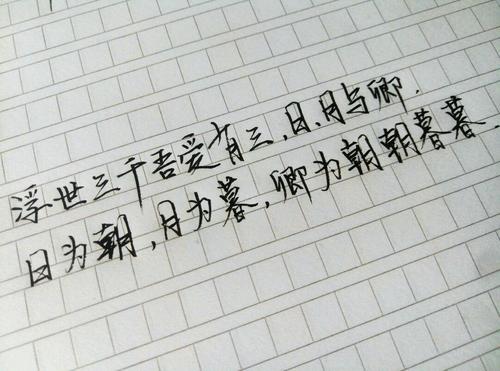 浮世三千吾爱有三,日、月与卿.
日为朝,月为暮,卿为朝朝暮暮.